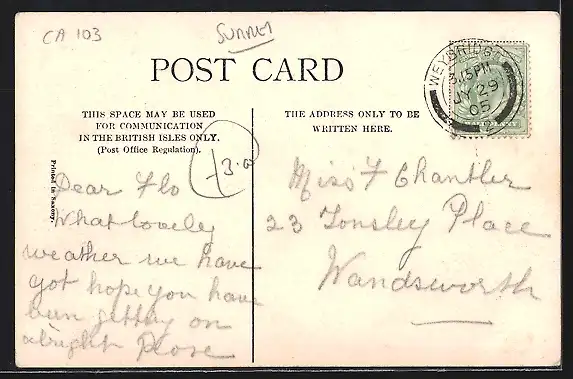 CA 103
SURREY
POST CARD
THIS SPACE MAY BE USED
FOR COMMUNICATION
IN THE BRITISH ISLES ONLY.
(Post Office Regulation).
THE ADDRESS ONLY TO BE
WRITTEN HERE.
WEYBRIDGE
3.15 PM
JY 29
05
3.00
Printed in Saxony.
Dear Flo
What lovely
weather we have
got hope you have
been getting on
alright
Miss F Chantler
23 Tonsley Place
Wandsworth